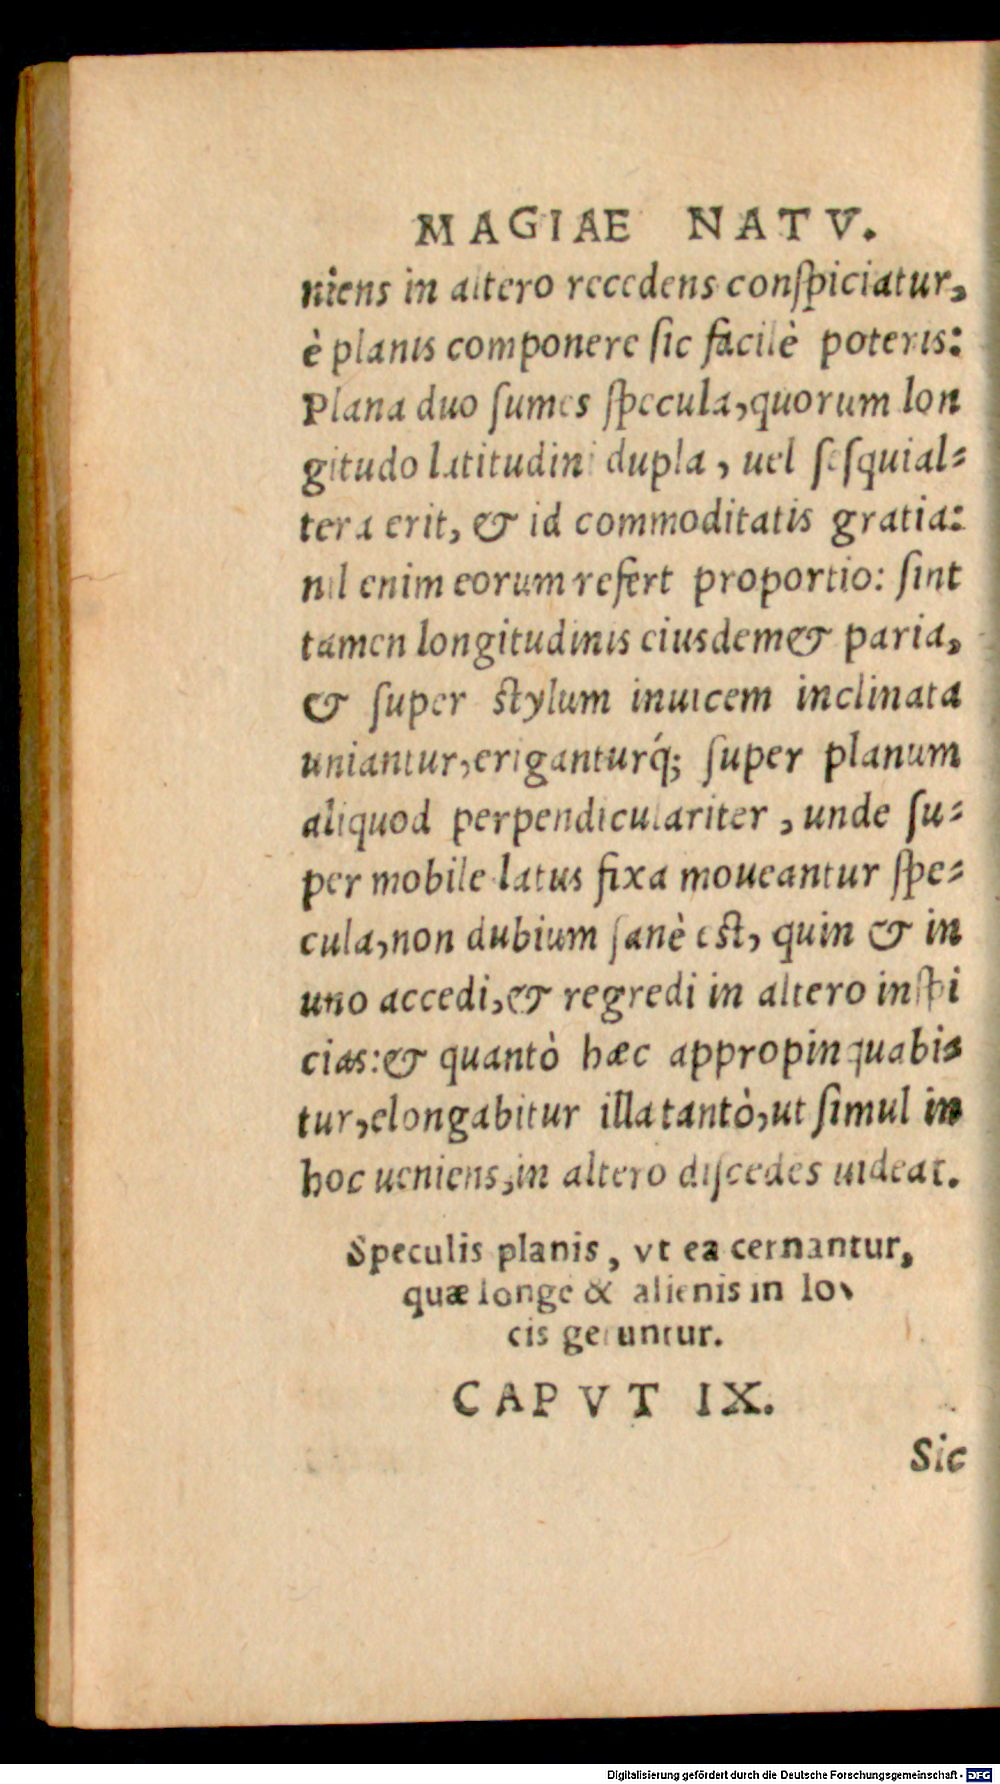 MAGIAE NATV.
niens in altero recedens conſpiciatur,
è planis componere ſic facilè poteris:
Plana duo ſumes ſpecula, quorum lon
gitudo latitudini dupla, uel ſeſquial-
tera erit, & id commoditatis gratia:
nil enim eorum refert proportio: ſint
tamen longitudinis eiusdem & paria,
& ſuper ſtylum inuicem inclinata
uniantur, eriganturq́; ſuper planum
aliquod perpendiculariter, unde ſu-
per mobile latus fixa moueantur ſpe-
cula, non dubium ſanè eſt, quin & in
uno accedi, & regredi in altero inſpi
cias: & quantò hæc appropinquabi-
tur, elongabitur illa tantò, ut ſimul in
hoc ueniens, in altero diſcedes uideat.
Speculis planis, vt ea cernantur,
quæ longe & alienis in lo-
cis geruntur.
CAPVT IX.
Sic
Digitalisierung gefördert durch die Deutsche Forschungsgemeinschaft - DFG